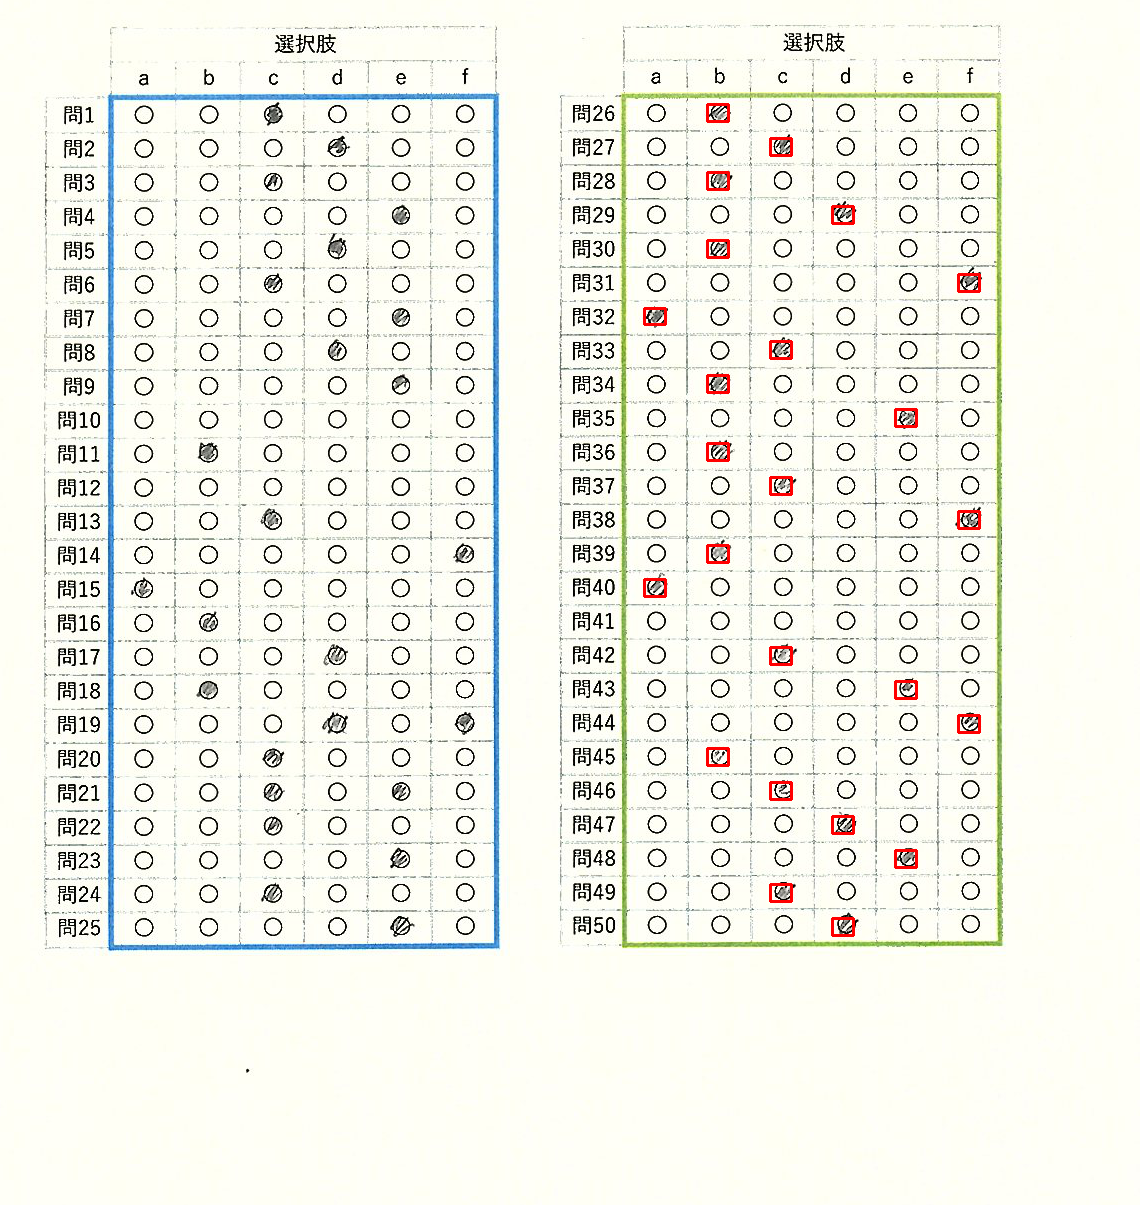 選択肢
a b c d e f
問1
問2
問3
問4
問5
問6
問7
問8
問9
問10
問11
問12
問13
問14
問15
問16
問17
問18
問19
問20
問21
問22
問23
問24
問25
選択肢
a b c d e f
問26
問27
問28
問29
問30
問31
問32
問33
問34
問35
問36
問37
問38
問39
問40
問41
問42
問43
問44
問45
問46
問47
問48
問49
問50